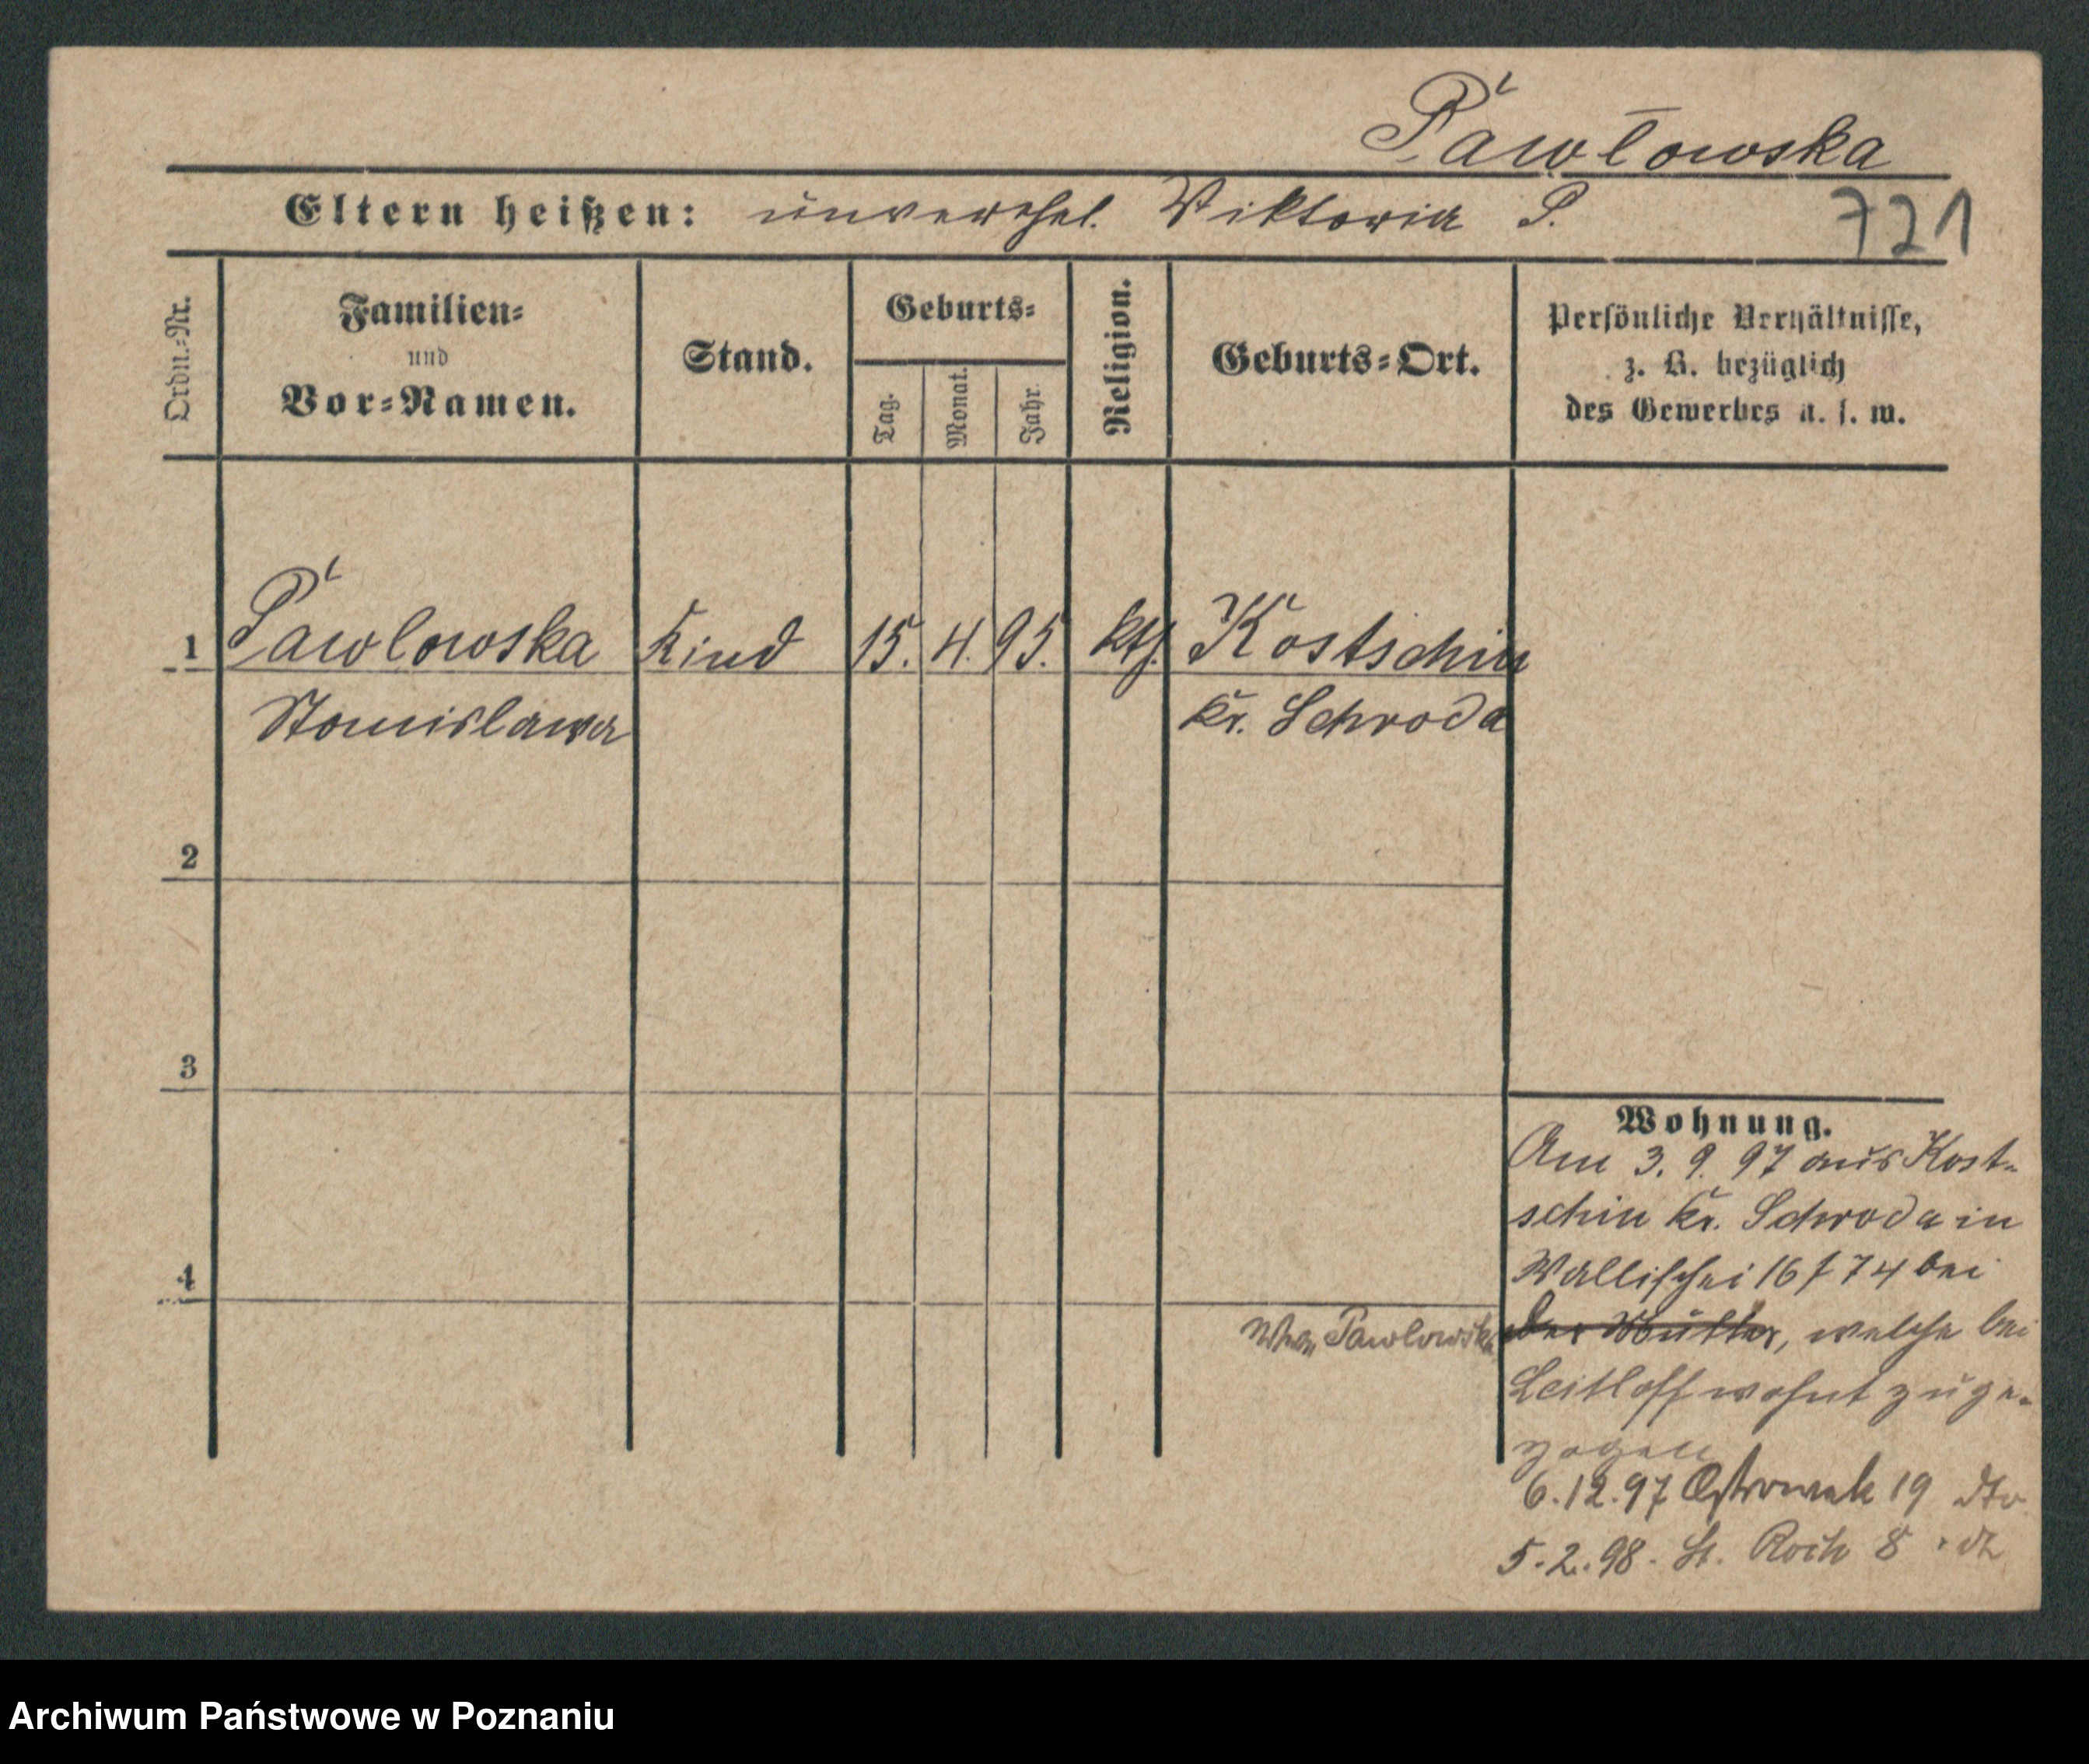 Pawłowska
Eltern heißen: unverehel. Viktoria P.
721
Ordn.-Nr.
Familien-
und
Vor-Namen.
Stand.
Geburts-
Tag.
Monat.
Jahr.
Religion.
Geburts-Ort.
Persönliche Verhältnisse,
z. B. bezüglich
des Gewerbes u. s. w.
1 Pawlowska Kind 15. 4. 95. kth. Kostschin
Stanislawa Kr. Schroda
2
3
4
Wohnung.
Am 3. 9. 97 aus Kost-
schin Kr. Schroda in
Wallischei 16/74 bei
der Mutter, welche bei
Pawlowska
Leitloff wohnt zuge-
zogen
6.12.97 Ostrowek 19 dto
5.2.98. St. Roch 8
Archiwum Państwowe w Poznaniu